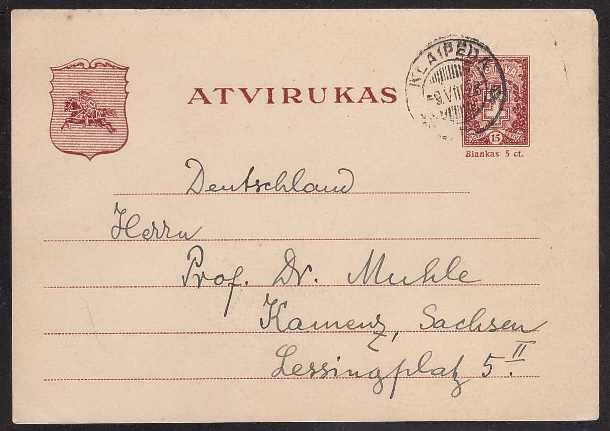 ATVIRUKAS
KLAIPĖDA
15
Blankas 5 ct.
Deutschland
Herrn
Prof. Dr. Muhle
Kamenz, Sachsen
Lessingplatz 5.II